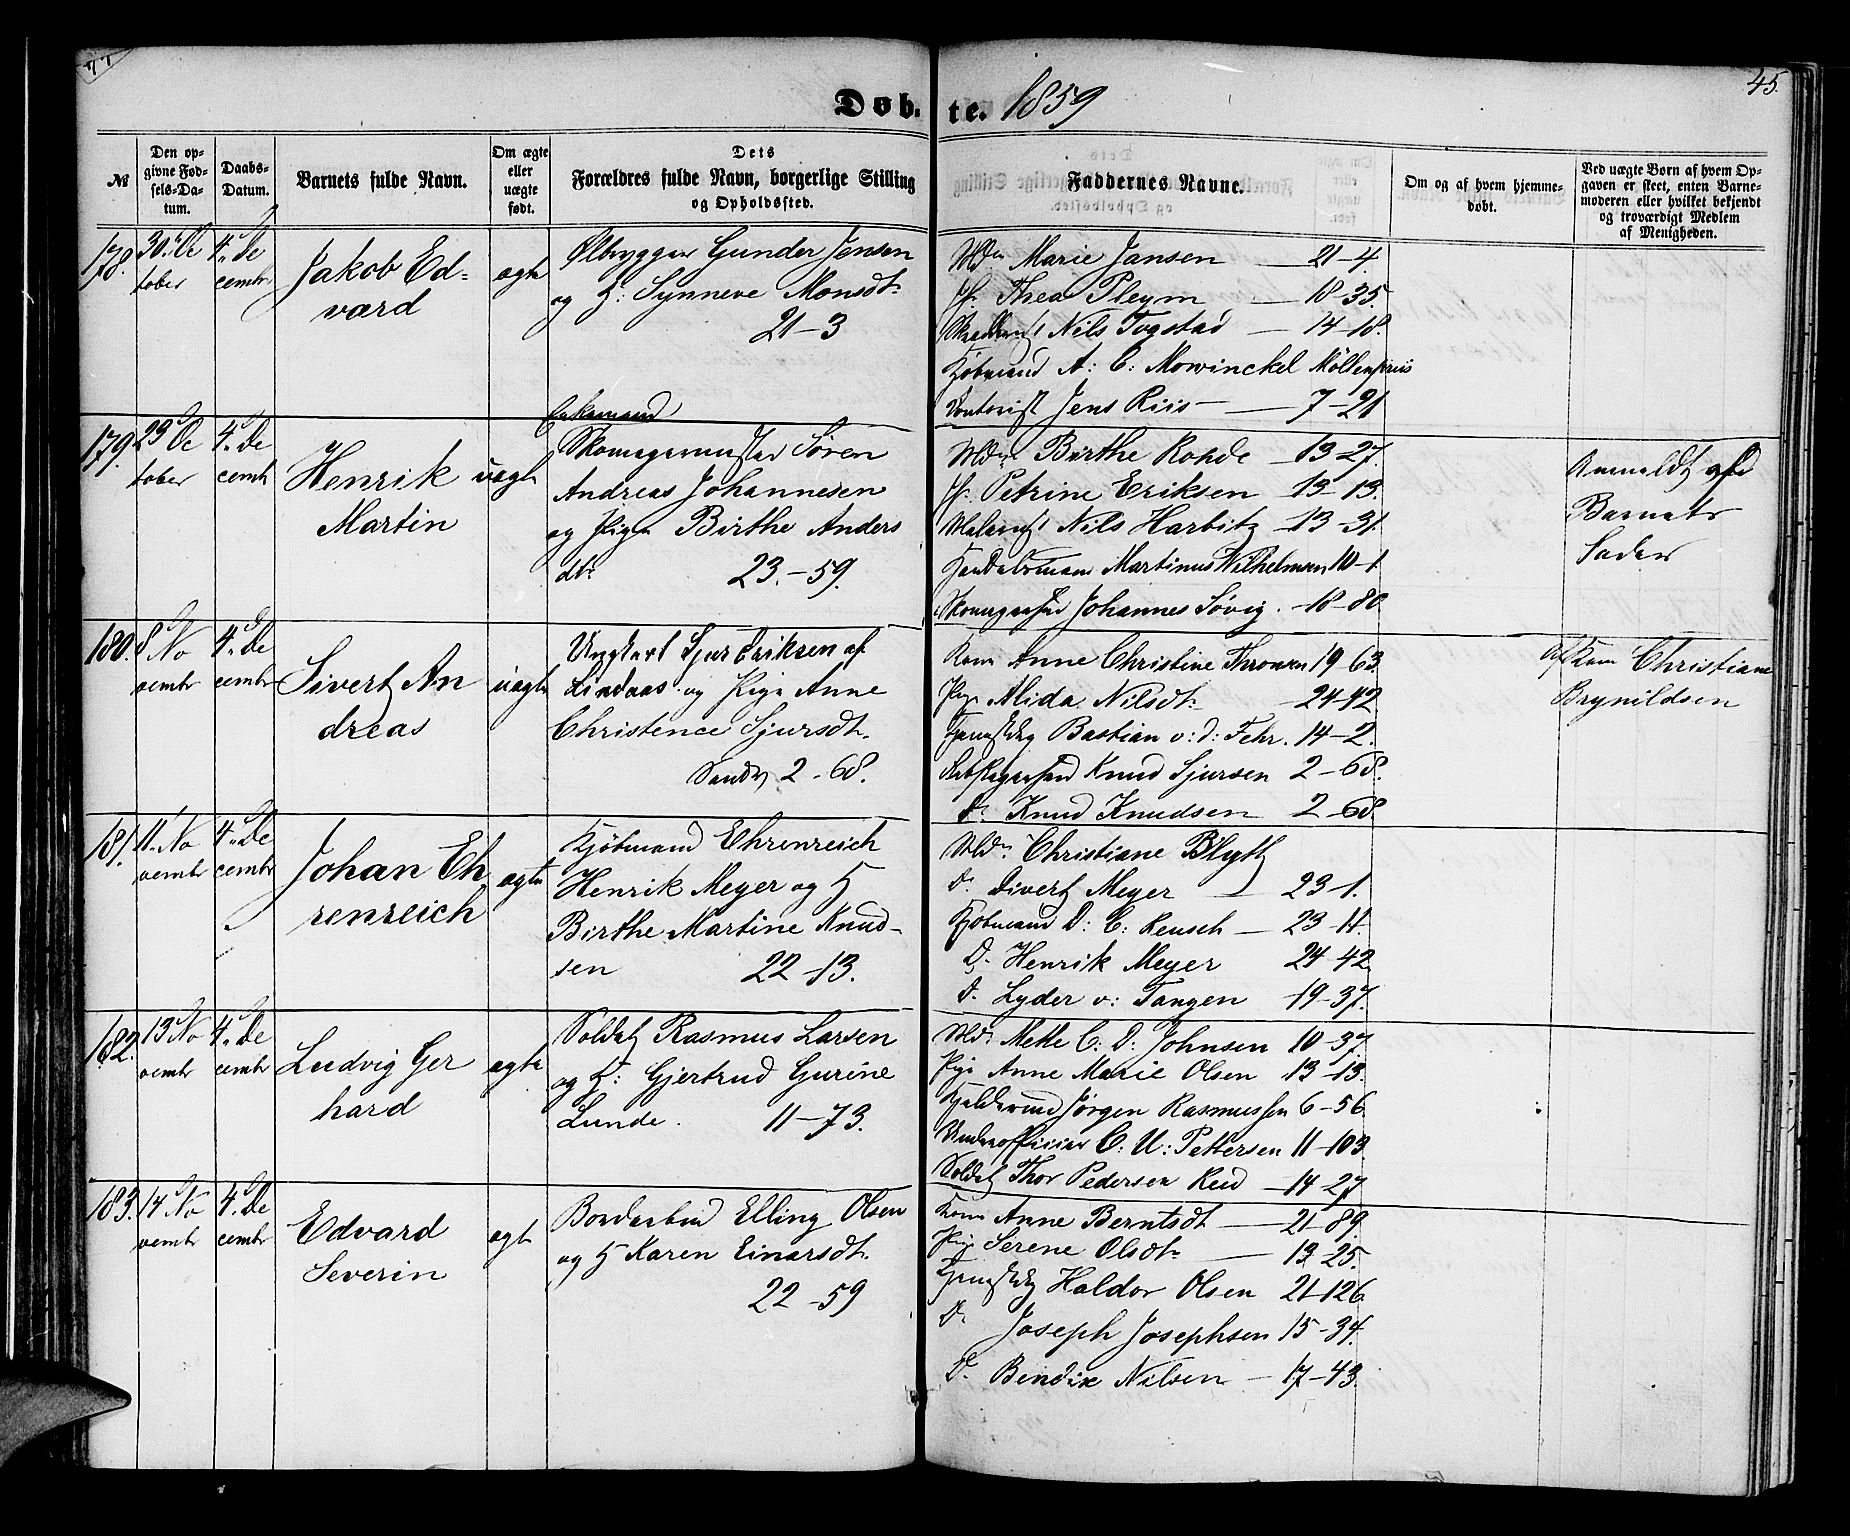 45.
Døbte. 1859
№
Den opgivne Fødsels-Datum.
Daabs-Datum.
Barnets fulde Navn.
Om ægte eller uægte født.
Dets Forældres fulde Navn, borgerlige Stilling og Opholdssted.
Faddernes Navne.
Om og af hvem hjemmedøbt.
Ved uægte Børn af hvem Opgaven er skeet, enten Barnemoderen eller hvilket bekjendt og troværdigt Medlem af Menigheden.
178. 30. Oc 4. De
tober cembr
Jakob Ed-
vard
ægte
Ølbrygger Gunder Jensen
og H: Synneve Monsdtr
21-3
Md. Marie Jansen 21-4.
Jfr Thea Pleym 18-35.
Nils Togstad 14-18.
Kjøbmand A: C: Mowinckel Möllenpriis
Contorist Jens Riis 7-21
179. 29 Oc 4. De
tober cembr
Henrik
Martin
uægte
Enkemand
Skomagermester Søren
Andreas Johannesen
og Pige Birthe Anders
dtr 23.-59.
Md. Birthe Rohde 13-27.
Jfr. Petrine Eriksen 13-13.
Nils Harbitz 13-31.
Handelsmand Martinus Wilhelmsen 10-1
Johannes Søvig. 18-80
Anmeldt af
Barnets
Fader
180. 8 No 4. De
vembr cembr
Sivert An
dreas
uægte
Ungkarl Sjur Eriksen af
Lindaas og Pige Anne
Christence Sjursdtr.
Sandv 2-68.
Kone Anne Christine Thronsen 19-63.
Pige Alida Nilsdtr 24-42
Bastian v: d: Fehr. 14-2.
Knud Sjursen 2-68.
Do Knud Knudsen 2-68
Af Kone Christiane
Brynildsen
181. 11. No 4. De
vembr cembr
Johan Eh
renreich
ægte
Kjøbmand Ehrenreich
Henrik Meyer og H
Birthe Martine Knud-
sen 22-13.
Md. Christiane Blyth
Do Sivert Meyer 23-1.
Kjøbmand D: C: Reusch 23-11.
Do Henrik Meyer 24-42
Do Lyder v: Tangen 19-37.
182. 13 No 4. De
vembr cembr
Ludvig Ger
hard
ægte
Soldat Rasmus Larsen
og H: Gjertrud Gurine
Lunde. 11-73.
Md. Mette C: D: Johnsen 10-37.
Pige Anne Marie Olsen 13-13.
Jørgen Rasmussen 6-56.
Underofficier C: U: Pettersen 11-103.
Soldat Thor Pedersen Reid 14-27
183. 14 No 4. De
vembr cembr
Edvard
Severin
ægte
Elling Olsen
og H Karen Einarsdtr.
22-59
Kone Anne Berntsdt 21-89.
Pige Serene Olsdtr 13-25.
Haldor Olsen 21-126
Do Joseph Josephsen 15-34.
Do Bendix Nilsen 17-43